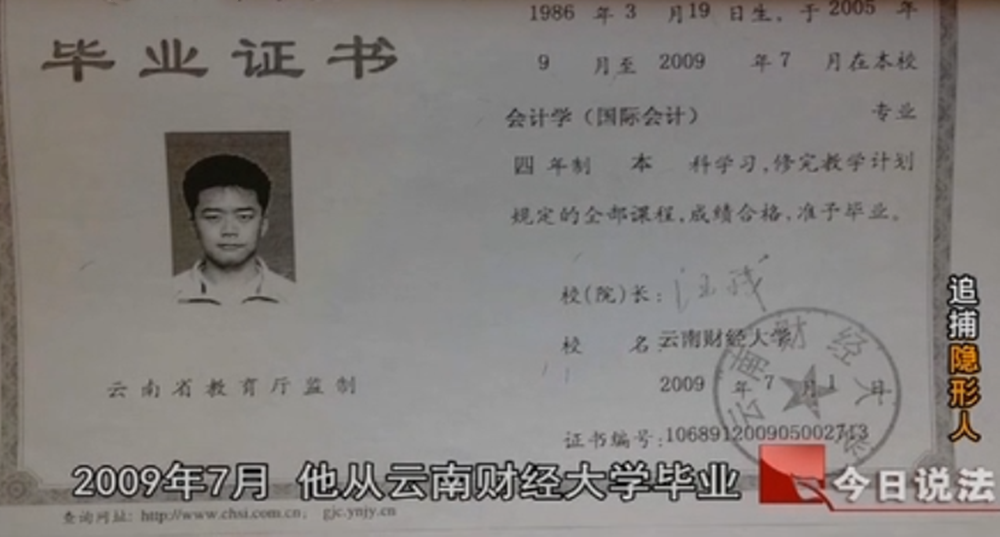 毕业证书
云南省教育厅监制
1986 年 3 月 19 日生，于 2005 年
9 月至 2009 年 7 月在本校
会计学（国际会计） 专业
四 年制 本 科学习，修完教学计划
规定的全部课程，成绩合格，准予毕业。
校（院）长：汪戎
校 名：云南财经大学
2009 年 7 月 1 日
证书编号：106891200905002713
云南财经大学
追捕隐形人
2009年7月 他从云南财经大学毕业
今日说法
查询网址：http://www.chsi.com.cn； gjc.ynjy.cn